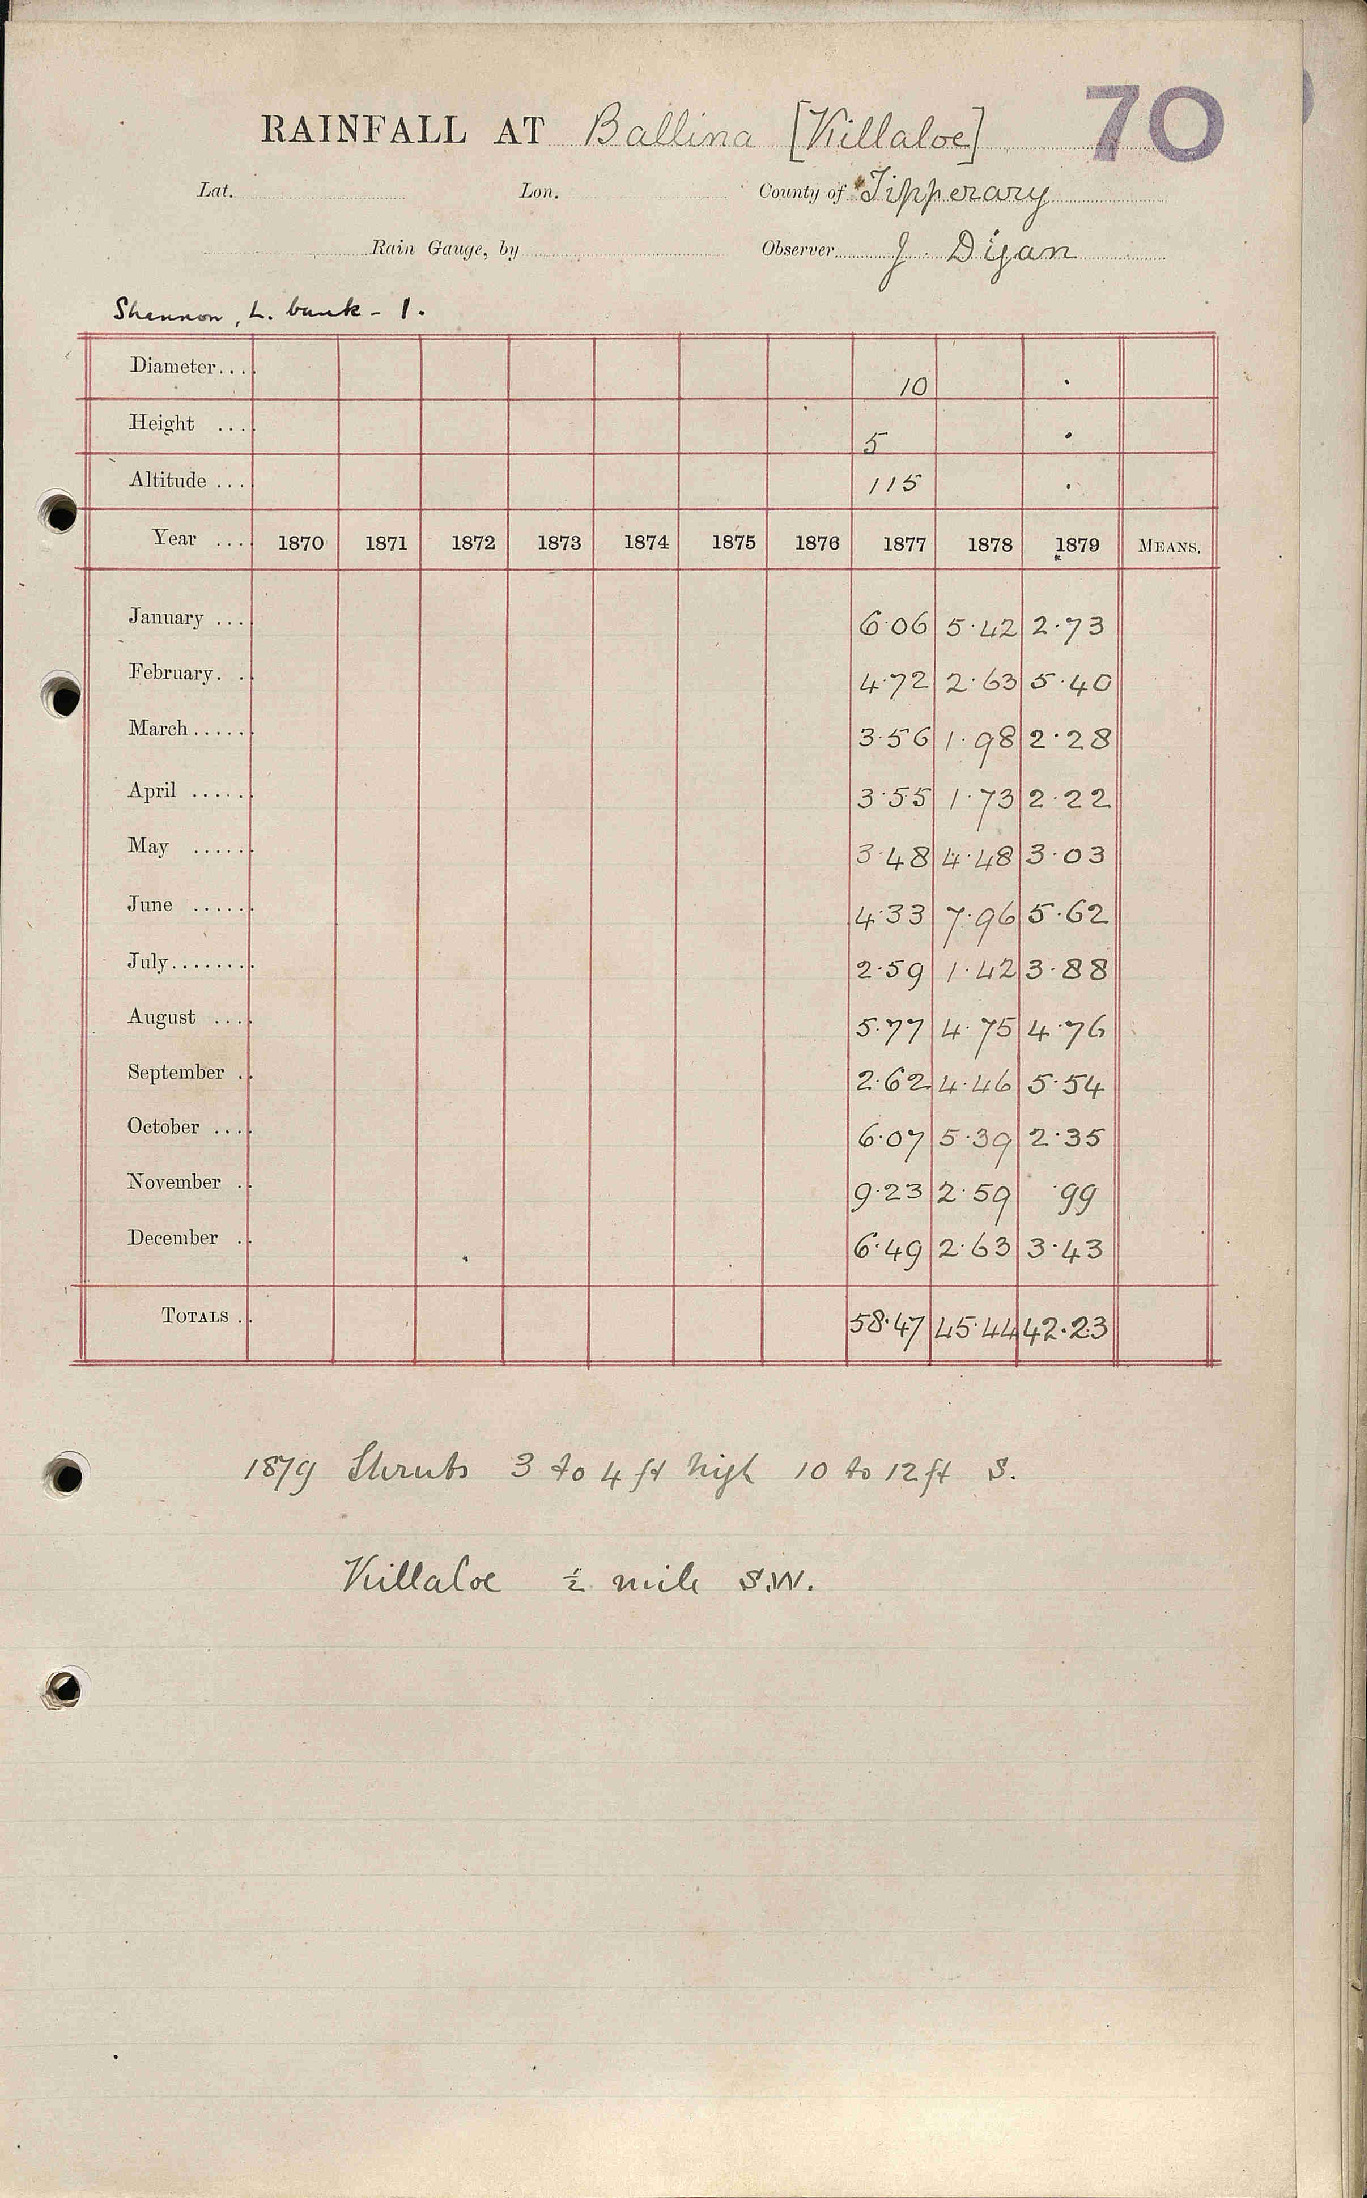 70
RAINFALL AT Ballina [Killaloe]
Lat. Lon. County of Tipperary
Rain Gauge, by Observer J. Digan
Shannon, L. bank - 1.
Diameter.... 10 .
Height .... 5 .
Altitude ... 115 .
Year .... 1870 1871 1872 1873 1874 1875 1876 1877 1878 1879 MEANS.
January ... 6.06 5.42 2.73
February. . 4.72 2.63 5.40
March...... 3.56 1.98 2.28
April ...... 3.55 1.73 2.22
May ...... 3.48 4.48 3.03
June ...... 4.33 7.96 5.62
July........ 2.59 1.42 3.88
August .... 5.77 4.75 4.76
September .. 2.62 4.46 5.54
October .... 6.07 5.39 2.35
November .. 9.23 2.59 .99
December .. 6.49 2.63 3.43
TOTALS .. 58.47 45.44 42.23
1879 Shrubs 3 to 4 ft high 10 to 12 ft S.
Killaloe ½ mile S.W.